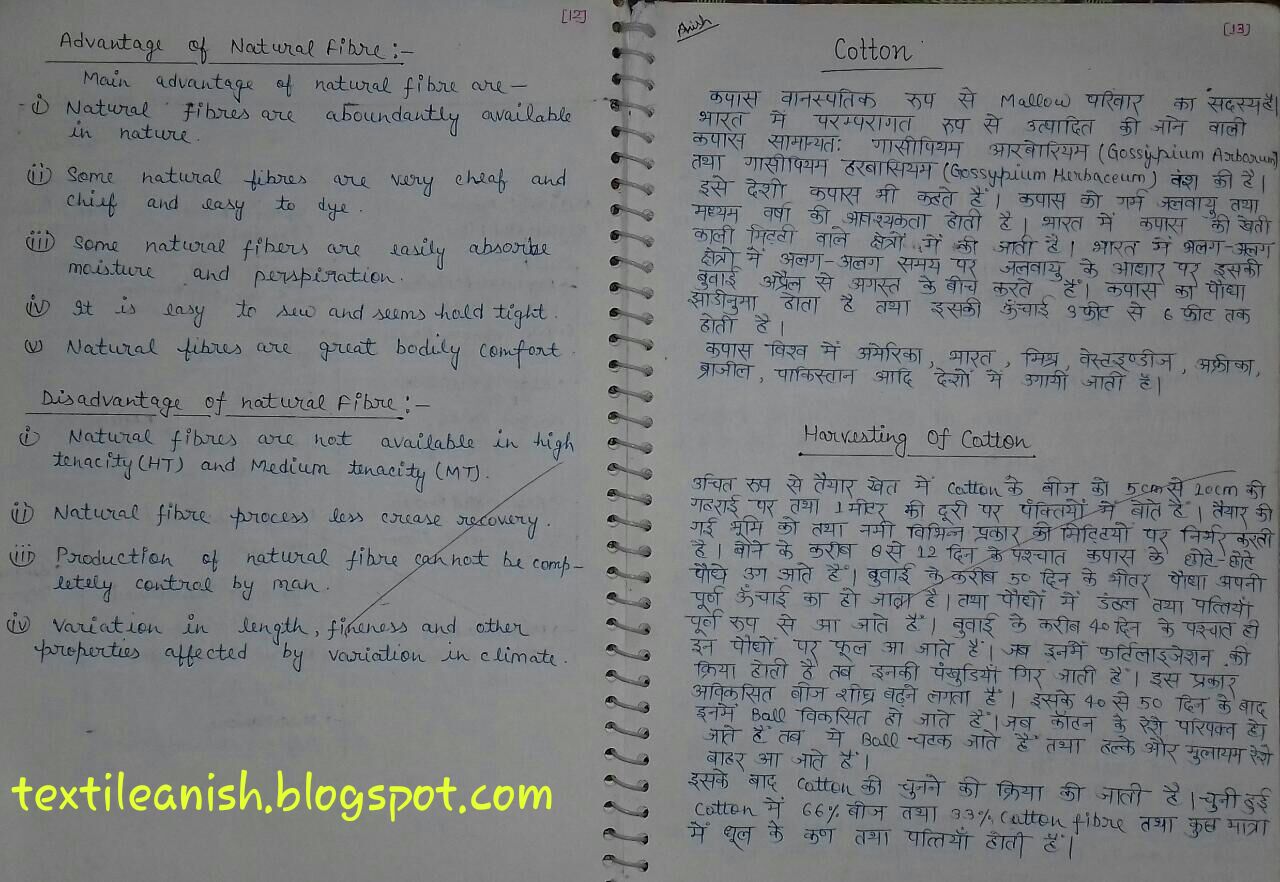 [12]
Advantage of Natural Fibre:-
Main advantage of natural fibre are—
i) Natural fibres are aboundantly available
in nature.
ii) Some natural fibres are very cheaf and
chief and easy to dye.
iii) Some natural fibers are easily absoribe
moisture and perspiration.
iv) It is easy to sew and seems hold tight.
v) Natural fibres are great bodily comfort.
Disadvantage of natural Fibre:-
i) Natural fibres are not available in high
tenacity(HT) and Medium tenacity (MT).
ii) Natural fibre process less crease recovery.
iii) Production of natural fibre cannot be comp-
letely contral by man.
iv) Variation in length, fineness and other
properties affected by variation in climate.
textileanish.blogspot.com
Anish
[13]
Cotton
कपास वानस्पतिक रूप से Mallow परिवार का सदस्य है।
भारत में परम्परागत रूप से उत्पादित की जाने वाली
कपास सामान्यत: गासीपियम आरबोरियम (Gossypium Arborum)
तथा गासीपियम हरबासियम (Gossypium Herbaceum) वंश की है।
इसे देशी कपास भी कहते हैं। कपास को गर्म जलवायु तथा
मध्यम वर्षा की आवश्यकता होती है। भारत में कपास की खेती
काली मिटटी वाले क्षेत्रों में की जाती है। भारत में अलग-अलग
क्षेत्रों में अलग-अलग समय पर जलवायु के आधार पर इसकी
बुवाई अप्रैल से अगस्त के बीच करते हैं। कपास का पौधा
झाडीनुमा होता है तथा इसकी ऊँचाई 3 फीट से 6 फीट तक
होती है।
कपास विश्व में अमेरिका, भारत, मिश्र, वेस्टइण्डीज, अफ्रीका,
ब्राजील, पाकिस्तान आदि देशों में उगायी जाती है।
Harvesting Of Cotton
उचित रूप से तैयार खेत में Cotton के बीज को 5cm से 10cm की
गहराई पर तथा 1 मीटर की दूरी पर पंक्तियों में बोते हैं। तैयार की
गई भूमि को तथा नमी विभिन्न प्रकार की मिटि्टयों पर निर्भर करती
है। बोने के करीब 8 से 12 दिन के पश्चात कपास के छोटे-छोटे
पौधे उग आते हैं। बुवाई के करीब 50 दिन के भीतर पौधा अपनी
पूर्ण ऊँचाई का हो जाता है। तथा पौधों में डंठल तथा पत्तियाँ
पूर्ण रूप से आ जाते हैं। बुवाई के करीब 40 दिन के पश्चात ही
इन पौधों पर फूल आ जाते हैं। जब इनमें फर्टिलाइजेशन की
क्रिया होती है तब इनकी पंखुडियाँ गिर जाती हैं। इस प्रकार
अविकसित बीज शीघ्र बढ़ने लगता है। इसके 40 से 50 दिन के बाद
इनमें Ball विकसित हो जाते हैं। जब कॉटन के रेशे परिपक्व हो
जाते हैं तब ये Ball चटक जाते हैं तथा हल्के और मुलायम रेशे
बाहर आ जाते हैं।
इसके बाद Cotton की चुनने की क्रिया की जाती है। चुनी हुई
Cotton में 66% बीज तथा 33% Cotton fibre तथा कुछ मात्रा
में धूल के कण तथा पत्तियाँ होती हैं।